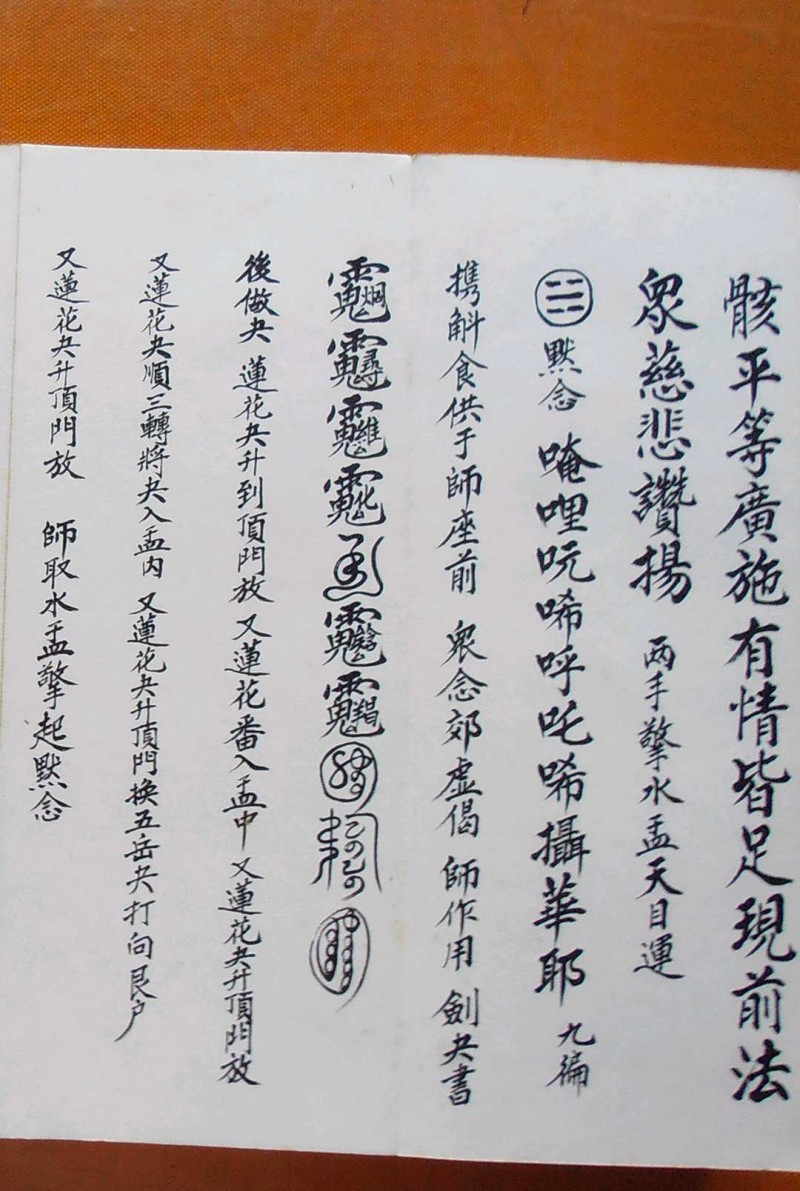 骸平等廣施有情皆足現前法
眾慈悲讚揚 两手擎水盂天目運
默念 唵哩吭唏呼吒唏攝華耶 九徧
携斛食供于師座前 衆念郊虛偈 師作用 劍夬書
後做夬 蓮花夬升到頂門放 又蓮花番入盂中 又蓮花夬升頂門放
又蓮花夬順三轉將夬入盂内 又蓮花夬升頂門換五岳夬打向艮户
又蓮花夬升頂門放 師取水盂擎起默念